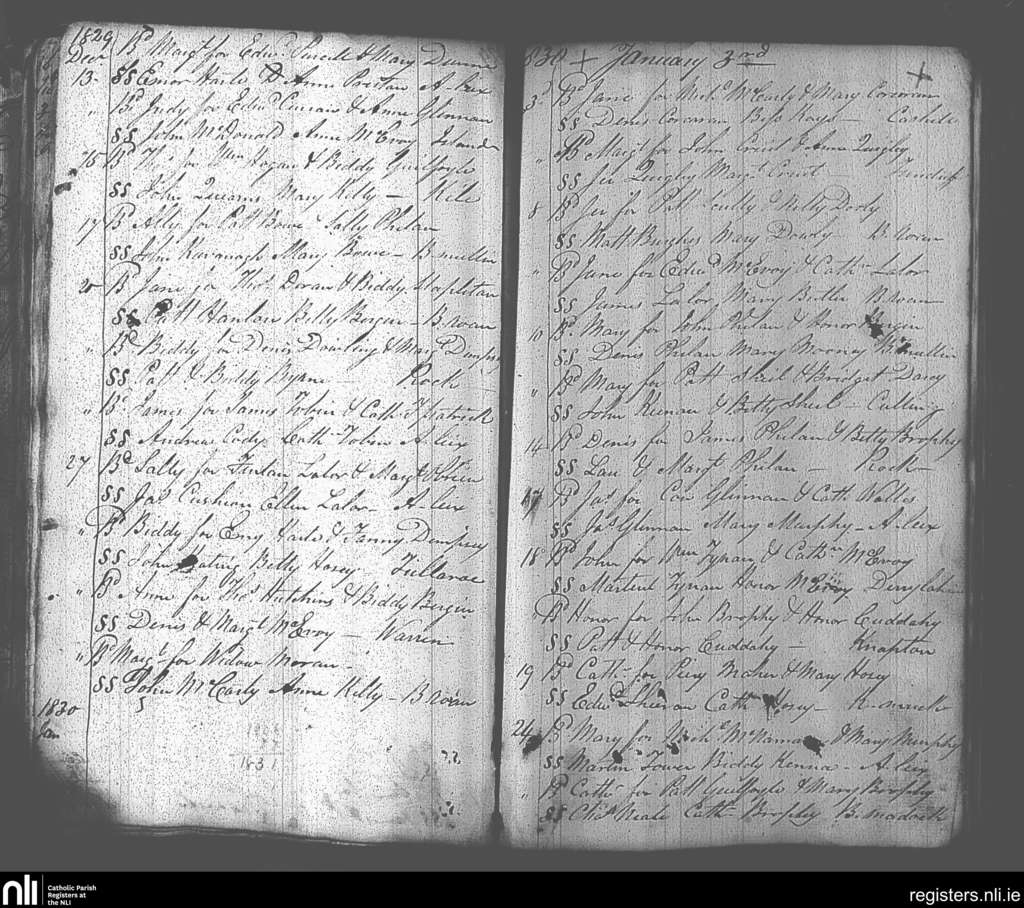 1829
Decr Bd Margt for Edwd Purcell & Mary
13 §§ Emor Haile & Anne Preston A-leix
" Bd Judy for Edwd Curran & Anne Glinnan
§§ John McDonald Anne McEvoy Island
25 Bd Ths for Wm Hogan & Biddy Guilfoyle
§§ John Mary Kelly – Kile
17 Bd Ally for Patt Bowe Sally Phelan
§§ John Kavanagh Mary Bowe – B-mullin
20 Bd Jane for Thos Doran & Biddy Stapleton
§§ Patt Hanlan Betty Bergin – B-roan
" Bd Biddy for Denis Dowling & Margt Dempsey
§§ Patt & Biddy Byrne – Rock
" Bd James for James Tobin & Cath Fpatrick
§§ Andrew Cody Cath Tobin A-leix
27 Bd Sally for Fintan Lalor & Margt
§§ Jas Cushion Ellen Lalor – A-leix
" Bd Biddy for Emy Haile & Fanny Dempsey
§§ John Betty Horey – Tullarae
" Bd Anne for Thos Hutchins & Biddy Bergin
§§ Denis & Margt McEvoy – Warren
" Bd Margt for Widow Moran –
§§ John McCarly Anne Kelly – B-roan
1830
Jan
1831
1830 + January 3rd +
3d Bd Jane for Michl McCarly & Mary Corcoran
§§ Denis Corcoran Bess Hoys – Castle
" Bd Margt for John Crout & Anne Quigley
§§ Jer Quigley Margt Crout –
8 Bd Jer for Patt Scully & Kelly Dooly
§§ Matt Burghes Mary Dowdy – B-roan
" Bd Jane for Edwd McEvoy & Cathn Lalor
§§ James Lalor, Mary Butler B-roan
10 Bd Mary for John Phelan & Honor Bergin
§§ Denis Phelan Mary Mooney B-mullin
" Bd Mary for Patt Sheil & Bridget Darcy
§§ John Keenan & Betty Sheil – Cullinig
14 Bd Denis for James Phelan & Betty Brophy
§§ Lau & Margt Phelan – Rock –
17 Bd Jas for Con Glinnan & Cath Wallis
§§ Jas Glinnan Mary Murphy – A-leix
18 Bd John for Wm Tynan & Cathn McEvoy
§§ Martin Tynan Honor McEvoy Derrylahan
Bd Honor for John Brophy & Honor Cuddahy
§§ Patt & Honor Cuddahy – Knapton
19 Bd Cath for Piery Maher & Mary Horey
§§ Edwd Sheeran Cath Horey –
24 Bd Mary for Michl McNamara & Mary Murphy
§§ Martin Tower Biddy Kenna – A-leix
" Bd Cath for Patt Guilfoyle & Mary Brophy
§§ Chas Neale Cath Brophy B-madock
nli
Catholic Parish
Registers at
the NLI
registers.nli.ie